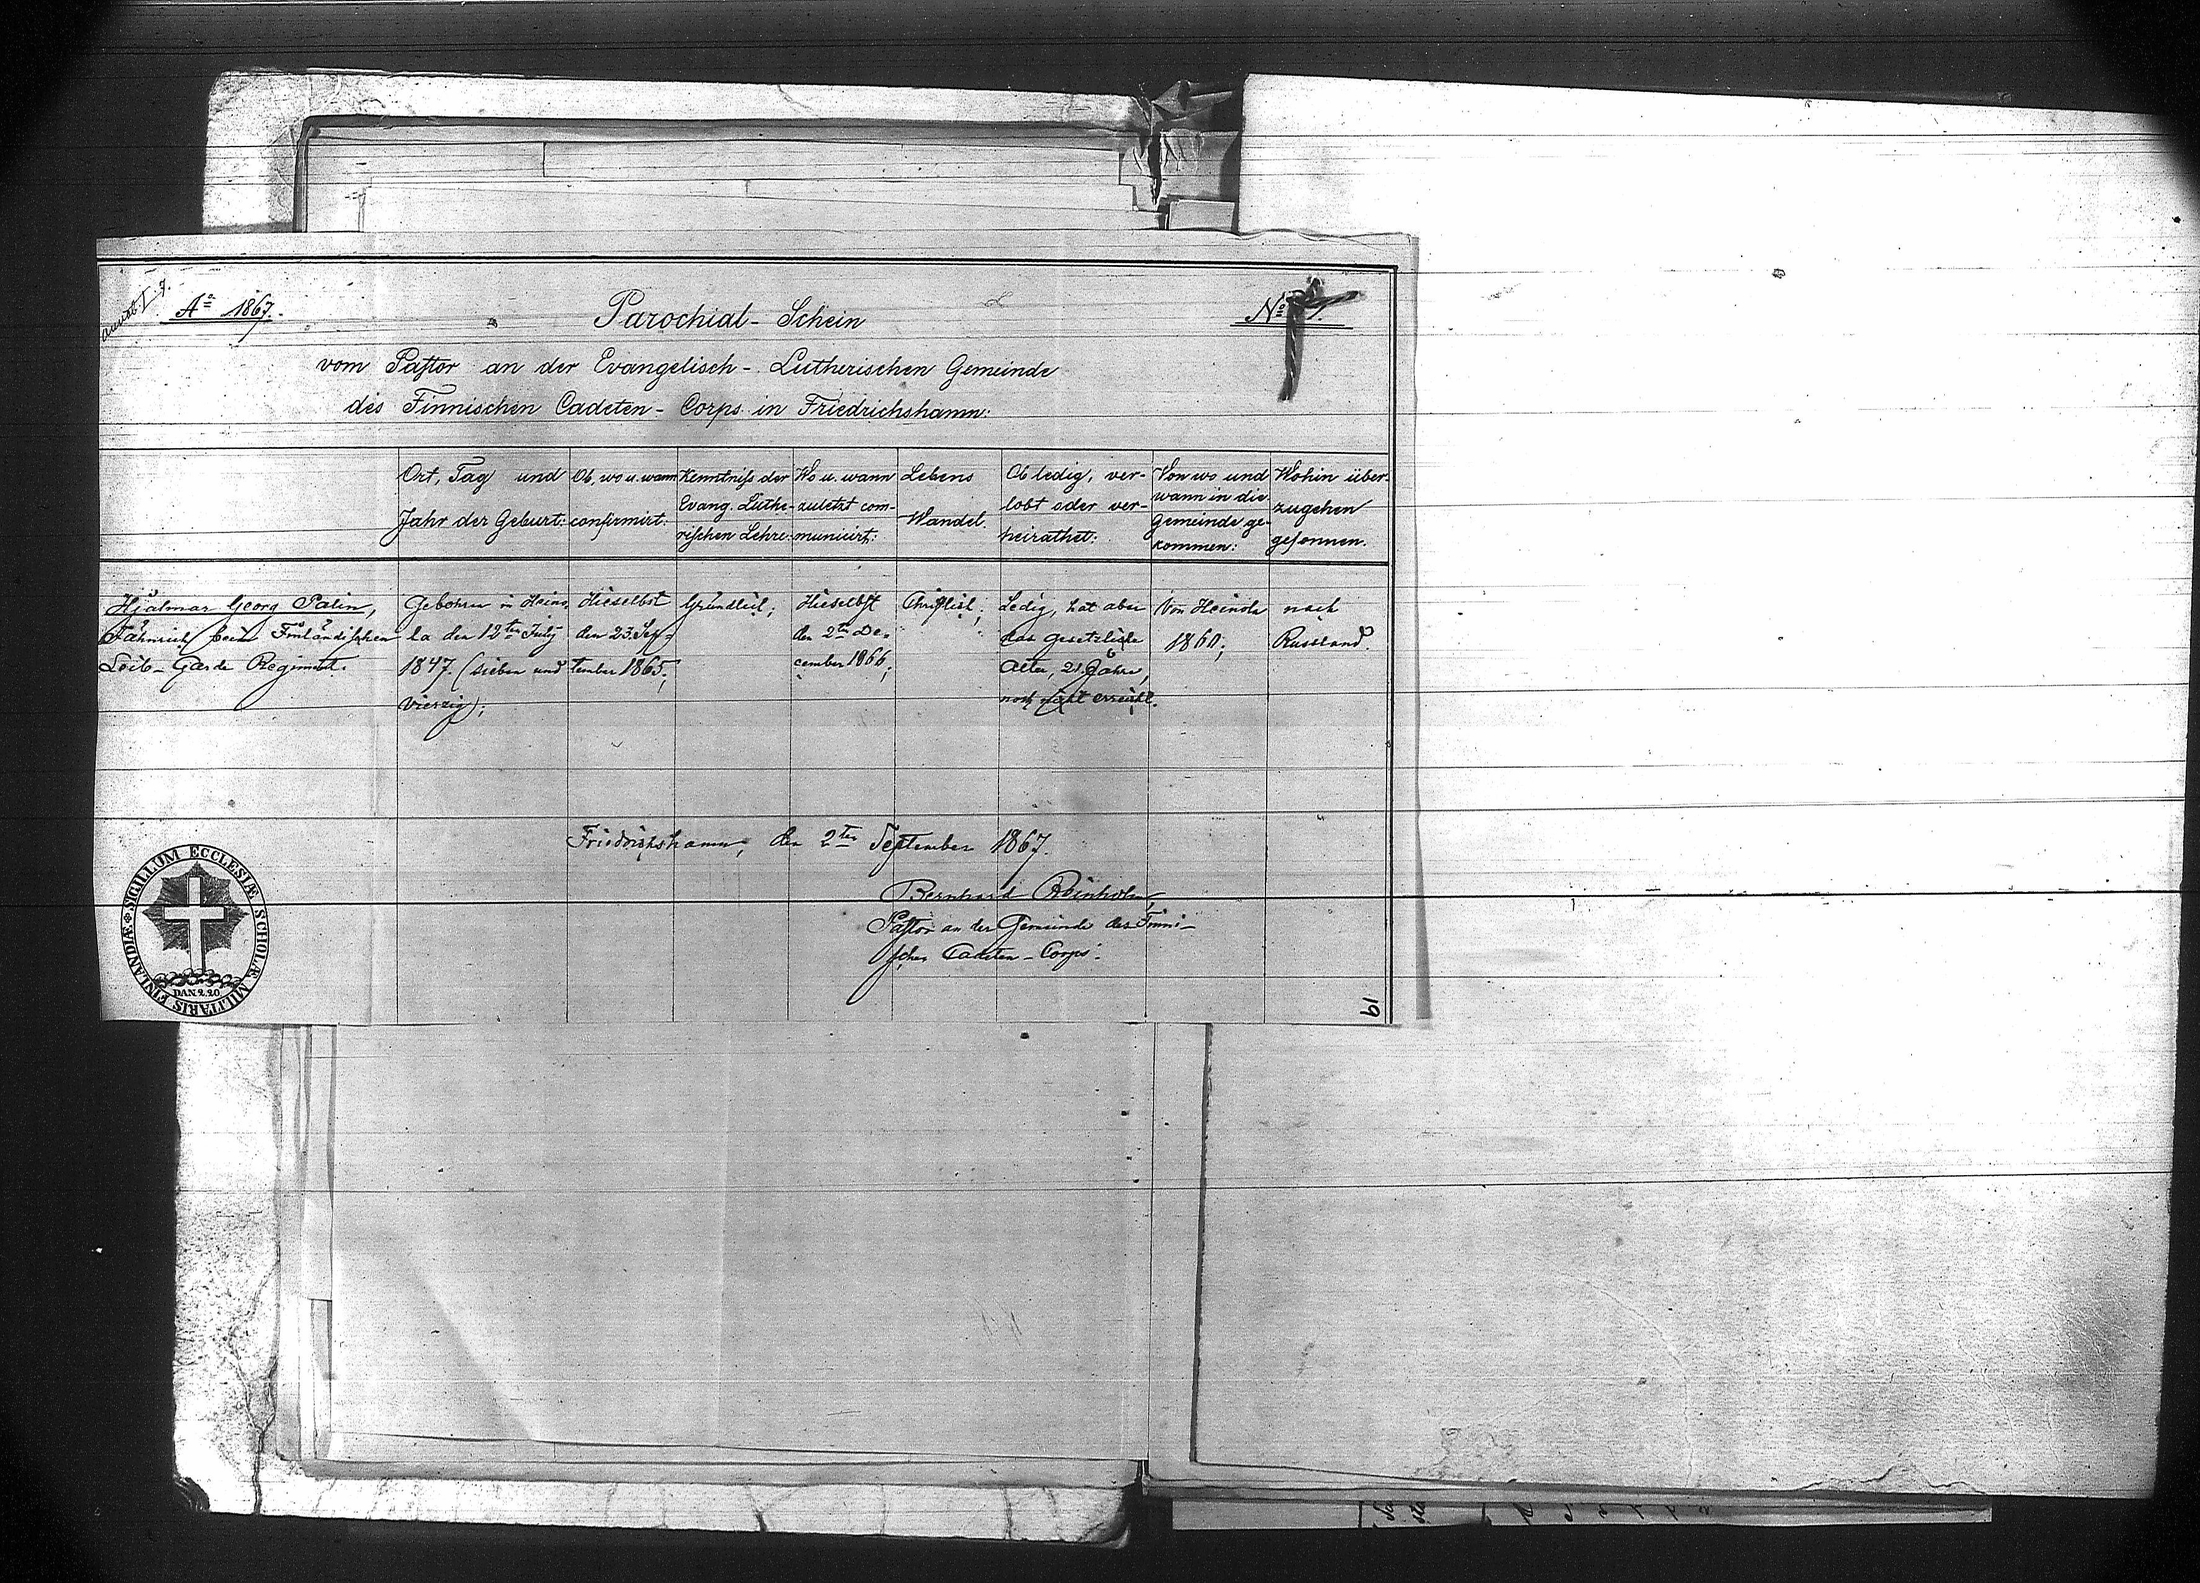 Aº 1867.
Parochial-Schein
Nº
vom Pastor an der Evangelisch-Lutherischen Gemeinde
des Finnischen Cadeten-Corps in Friedrichshamn:
Ort, Tag und
Jahr der Geburt:
Ob, wo u. wann
confirmirt:
Kenntniss der
Evang. Luthe-
rischen Lehre:
Wo u. wann
zuletzt com-
municirt:
Lebens
Wandel.
Ob ledig, ver-
lobt oder ver-
heirathet:
Von wo und
wann in die
Gemeinde ge-
kommen:
Wohin über-
zugehen
gesonnen.
Hjalmar Georg Palin,
Fähnrich beim Finländischen
Leib-Garde Regiment.
Gebohren in Heino
la den 12ten July
1847. (sieben und
vierzig);
Hieselbst
den 23. Sep-
tember 1865;
Gründlich;
Hieselbst
den 2ten De-
cember 1866;
Christlich;
Ledig, hat aber
das gesetzliche
Alter, 21 Jahre,
noch nicht erreicht.
Von Heinola
1860;
nach
Russland.
Friedrichshamn, den 2ten September 1867.
Bernhard Reinholm,
Pastor an der Gemeinde des Finni-
schen Cadeten-Corps.
SIGILLUM ECCLESIÆ SCHOLÆ MILITARIS FINLANDIÆ
DAN.2.20
19